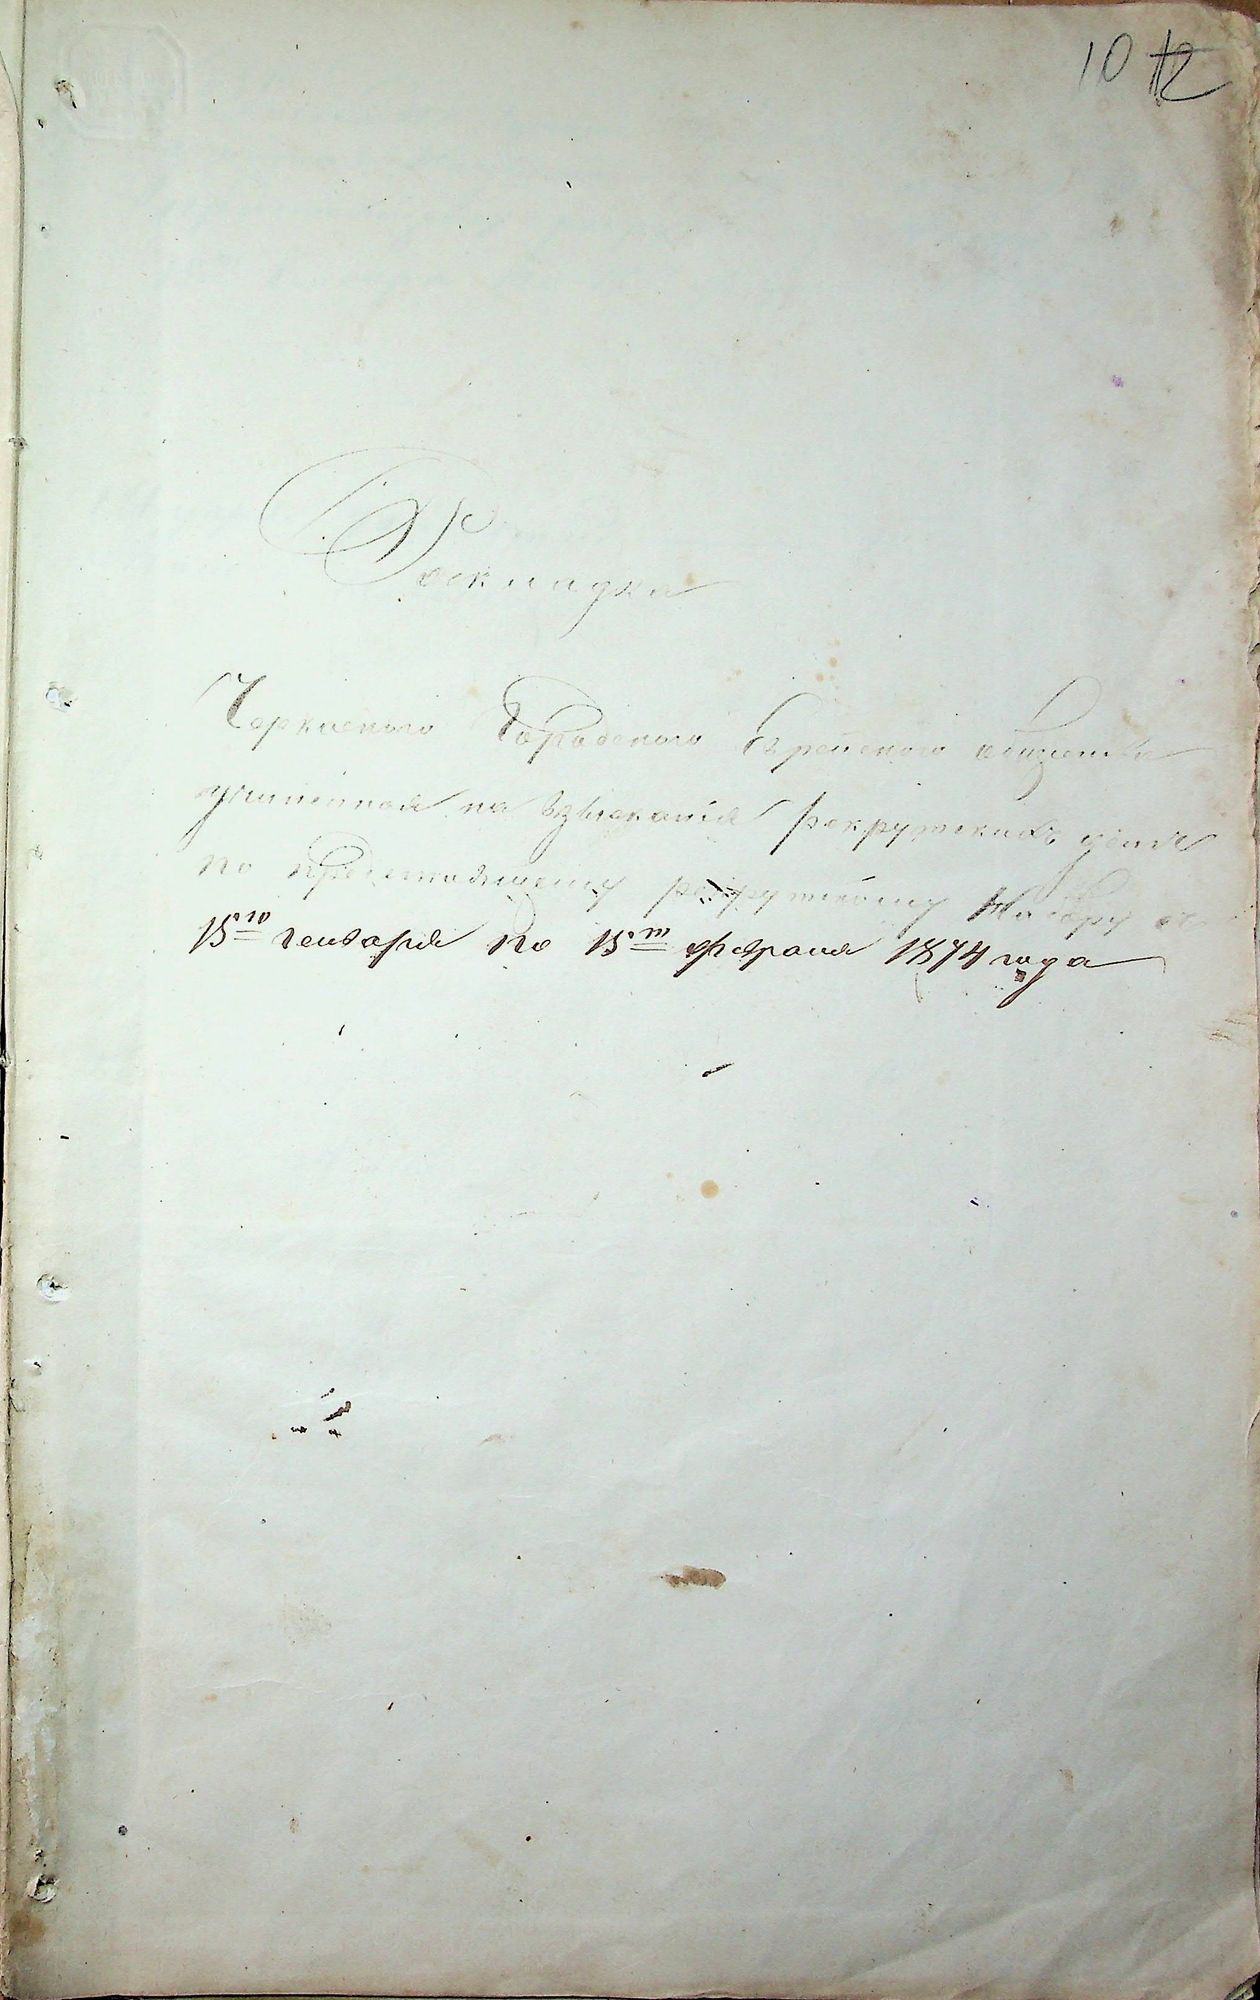 10 12
Раскладка
Черкаского Городского Еврейского общества
учиненная на взысканія рекрутскихъ денегъ
по предстоящему рекрутскому Набору съ
15го Генваря по 15го февраля 1874 года